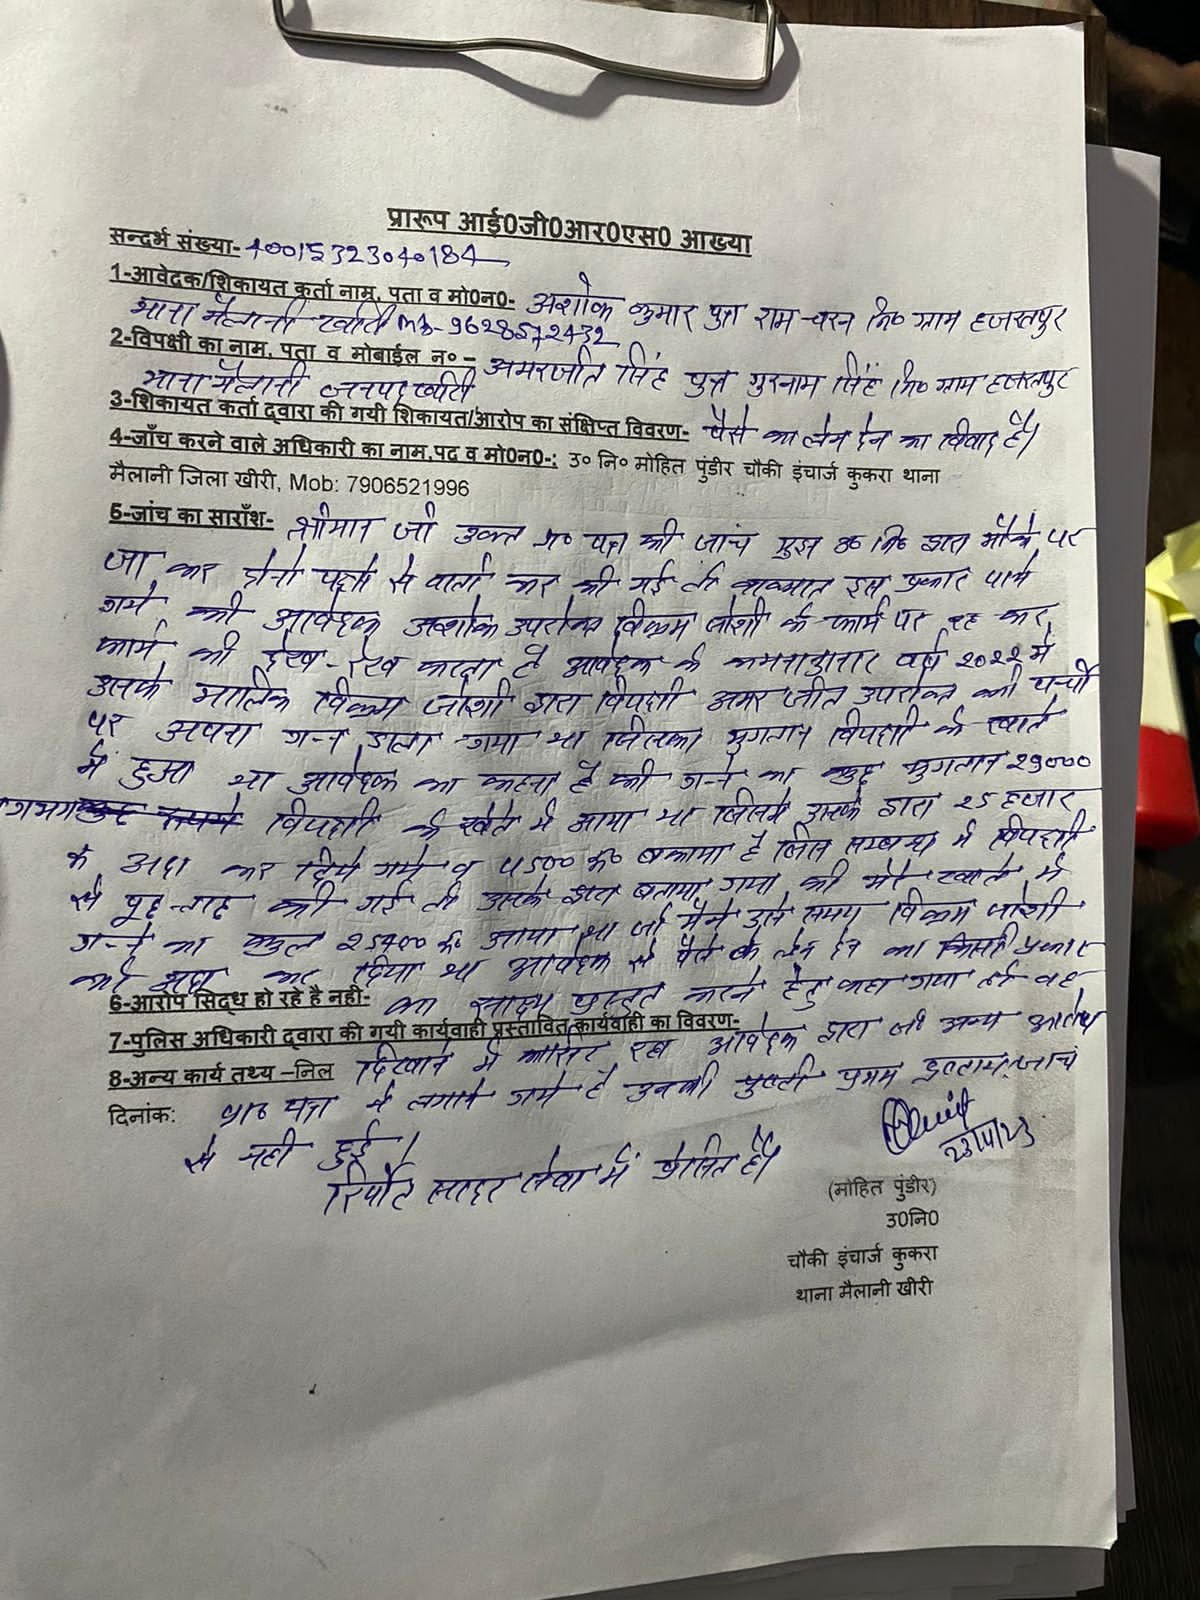 प्रारूप आई0जी0आर0एस0 आख्या
सन्दर्भ संख्या- 40015323040184
1-आवेदक/शिकायत कर्ता नाम, पता व मो0न0- अशोक कुमार पुत्र राम चरन नि० ग्राम हजरतपुर
थाना मैलानी खीरी mb- 9628572432
2-विपक्षी का नाम, पता व मोबाईल न० – अमरजीत सिंह पुत्र गुरनाम सिंह नि० ग्राम हजरतपुर
थाना मैलानी जनपद खीरी
3-शिकायत कर्ता द्वारा की गयी शिकायत/आरोप का संक्षिप्त विवरण- पैसे का लेन देन का विवाद है।
4-जाँच करने वाले अधिकारी का नाम,पद व मो0न0-: उ० नि० मोहित पुंडीर चौकी इंचार्ज कुकरा थाना
मैलानी जिला खीरी, Mob: 7906521996
5-जांच का साराँश- श्रीमान जी उक्त प्रा० पत्र की जांच मुझ उ० नि० द्वारा मौके पर
जा कर दोनो पक्षो से वार्ता कर की गई तो हालात इस प्रकार पाये
गये की आवेदक अशोक उपरोक्त विक्रम जोशी के फार्म पर रह कर
फार्म की देख-रेख करता है आवेदक के कथनानुसार वर्ष २०२२ मे
उसके मालिक विक्रम जोशी द्वारा विपक्षी अमर जीत उपरोक्त की पर्ची
पर अपना गन्ना डाला गया था जिसका भुगतान विपक्षी के खाते
में हुआ था आवेदक का कहना है की गन्ने का कुछ भुगतान 29000
विपक्षी के खेते मे आया था जिसमे उसके द्वारा २५ हजार
रू अदा कर दिये गये व 4500 रू० बकाया है जिस सम्बन्ध मे विपक्षी
से पूछ-ताछ की गई तो उसके द्वारा बताया गया की मेरे खाते मे
गन्ने का कुल 25400 रू० आया था जो मैने उसी समय विक्रम जोशी
को अदा कर दिया था आवेदक से पैसे के लेन देन का किसी प्रकार
6-आरोप सिद्ध हो रहे है नही- का साक्ष्य प्रस्तुत करने हेतु कहा गया तो वह
7-पुलिस अधिकारी द्वारा की गयी कार्यवाही प्रस्तावित कार्यवाही का विवरण-
8-अन्य कार्य तथ्य –निल दिखाने मे कासिर रहा आवेदक द्वारा जो अन्य आरोप
दिनांक: प्रा० पत्र मे लगाये गये है उनकी पुष्टी प्रथम दृष्टया जांच
से नही हुई
23/11/23
रिपोर्ट सादर सेवा में प्रेषित है।
(मोहित पुंडीर)
उ0नि0
चौकी इंचार्ज कुकरा
थाना मैलानी खीरी